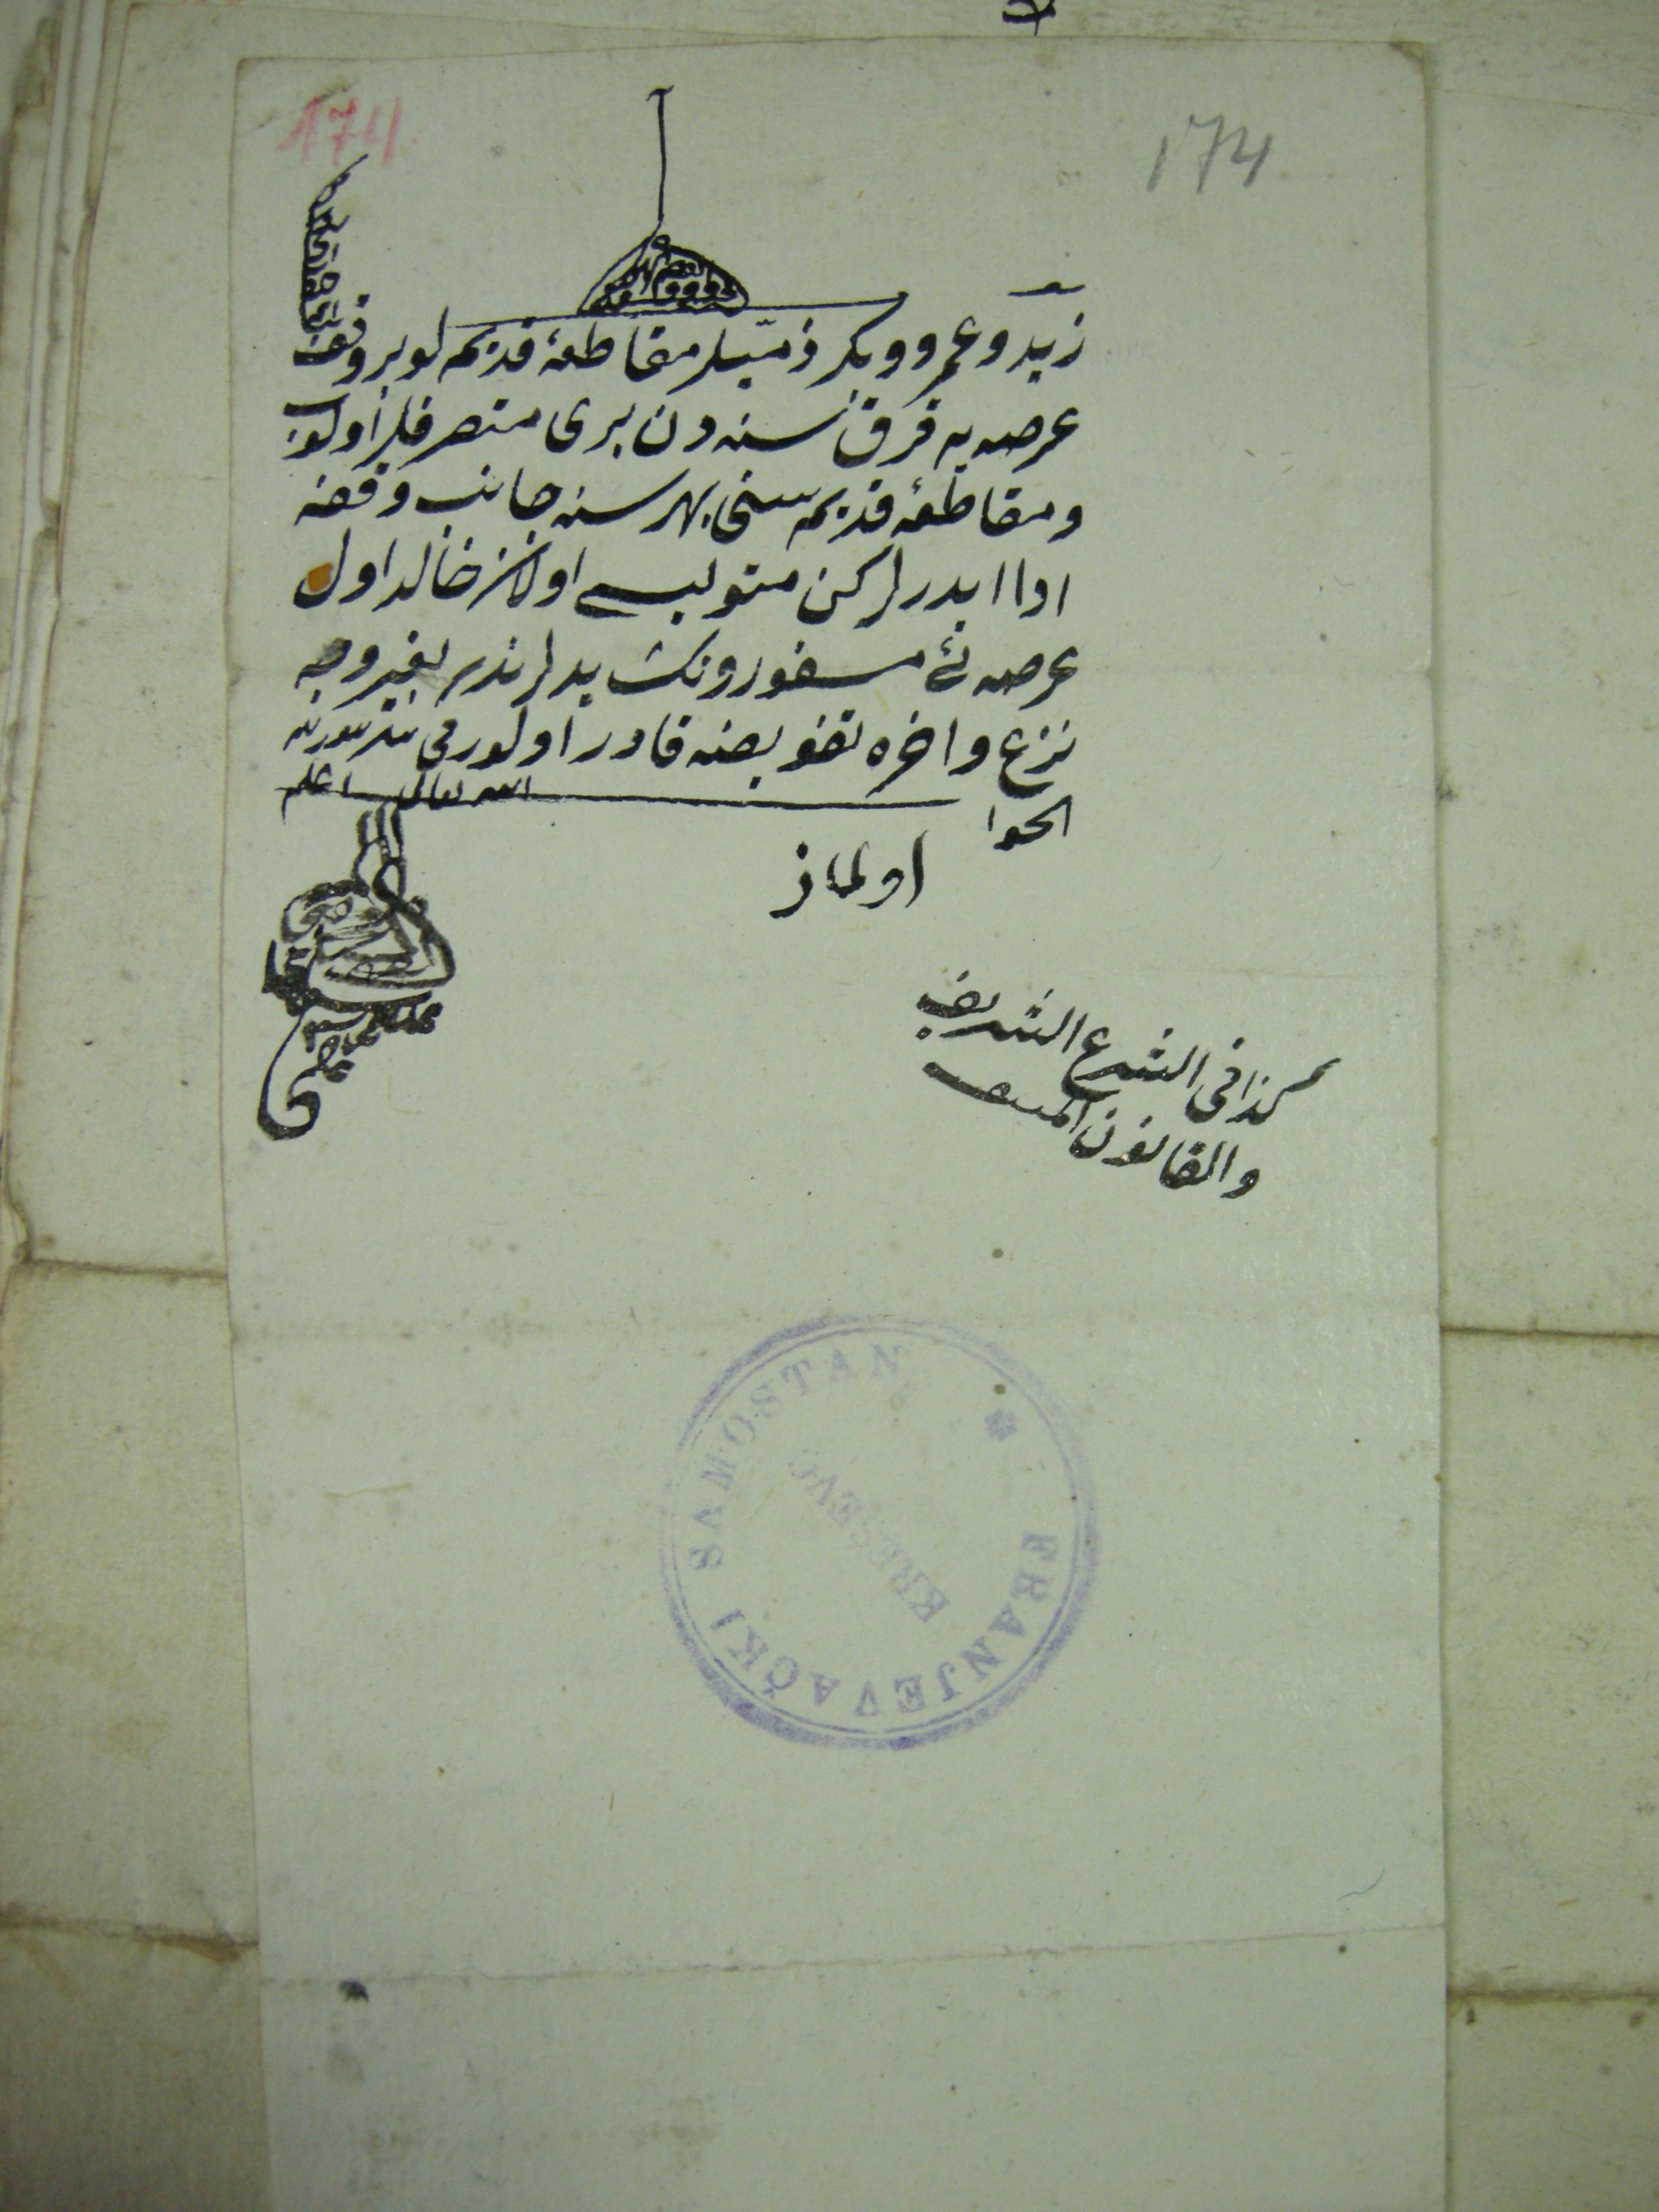 174
174
زيد وعمرو وبكر ذميلر مقاطعهٔ قديمه لو بر وقف
عرصه يه قرق سنه دن برى متصرفلر اولوب
ومقاطعهٔ قديمه سنى بهر سنه جانب وقفه
ادا ايدرلر كن متوليسى اولان خالد اول
عرصه ئى مسفورونك يدلرندن بغير وجه
نزع واخره تفويضه قادر اولورمى
الله تعالى اعلم
الجواب
اولماز
كذا فى الشرع الشريف
والقانون المنيف
FRANJEVAČKI SAMOSTAN
KREŠEVO